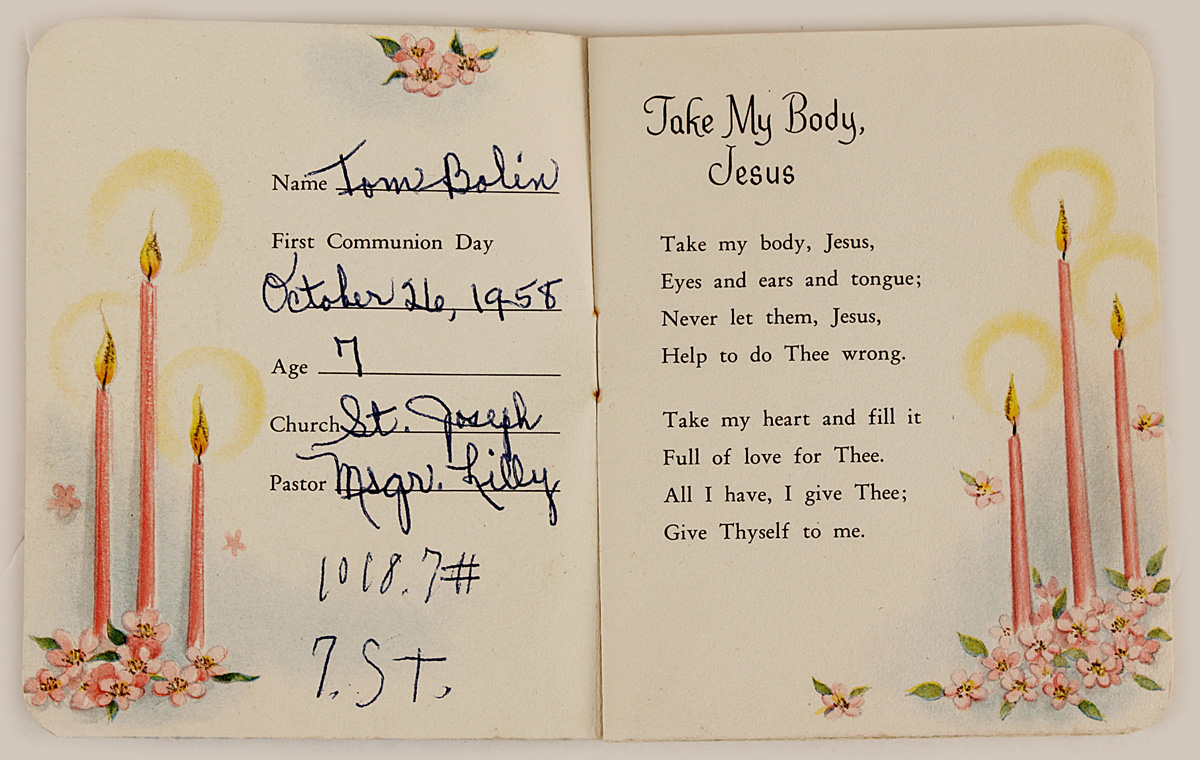 Name Tom Bolin
First Communion Day
October 26, 1958
Age 7
Church St. Joseph
Pastor Msgr. Lilly
1018.7#
7. St.
Take My Body,
Jesus
Take my body, Jesus,
Eyes and ears and tongue;
Never let them, Jesus,
Help to do Thee wrong.
Take my heart and fill it
Full of love for Thee.
All I have, I give Thee;
Give Thyself to me.